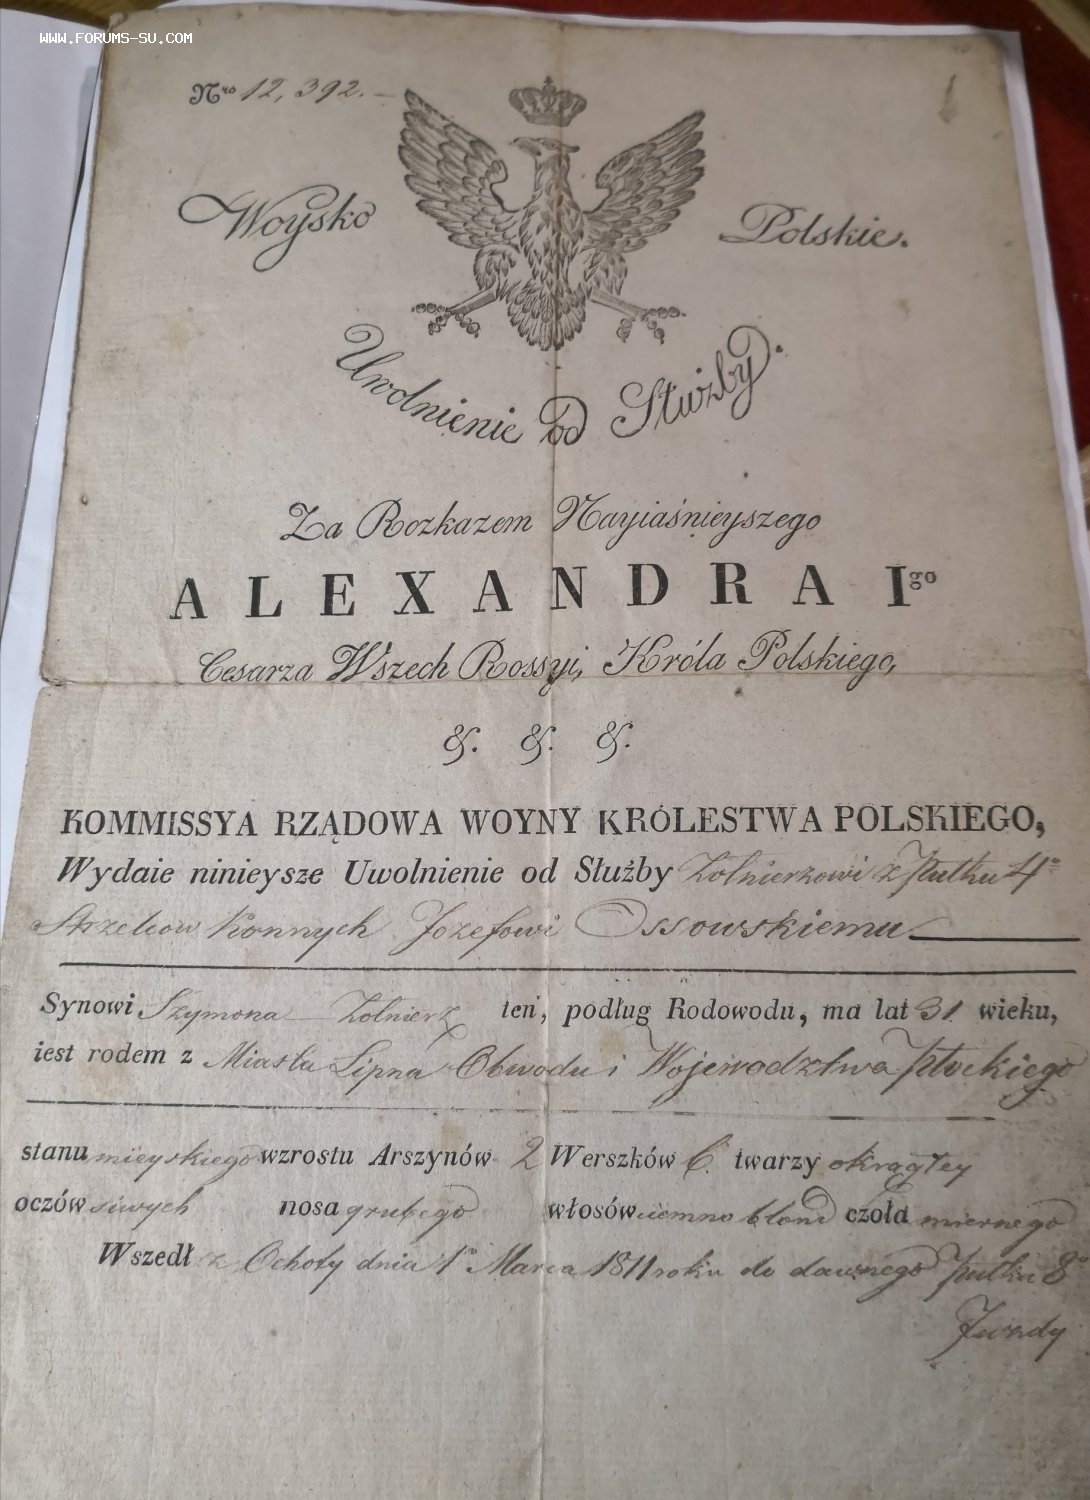 www.forums-su.com
Nro 12,392.—
Woysko Polskie.
Uwolnienie od Służby.
Za Rozkazem Nayiaśnieyszego
ALEXANDRA Igo
Cesarza Wszech Rossyi, Króla Polskiego,
&. &. &.
KOMMISSYA RZĄDOWA WOYNY KRÓLESTWA POLSKIEGO,
Wydaie ninieysze Uwolnienie od Służby Żolnierzowi z Pułku 4o
Strzelcow Konnych Jozefowi Ossowskiemu
Synowi Szymona Zolnierz ten, podług Rodowodu, ma lat 31 wieku,
iest rodem z Miasta Lipna Obwodu i Wojewodztwa Płockiego
stanu mieyskiego wzrostu Arszynów 2 Werszków 6. twarzy okrągłey
oczów siwych nosa grubego włosów ciemno blond czoła miernego
Wszedł z Ochoty dnia 1o Marca 1811 roku do dawnego Pułku 8o
Jazdy